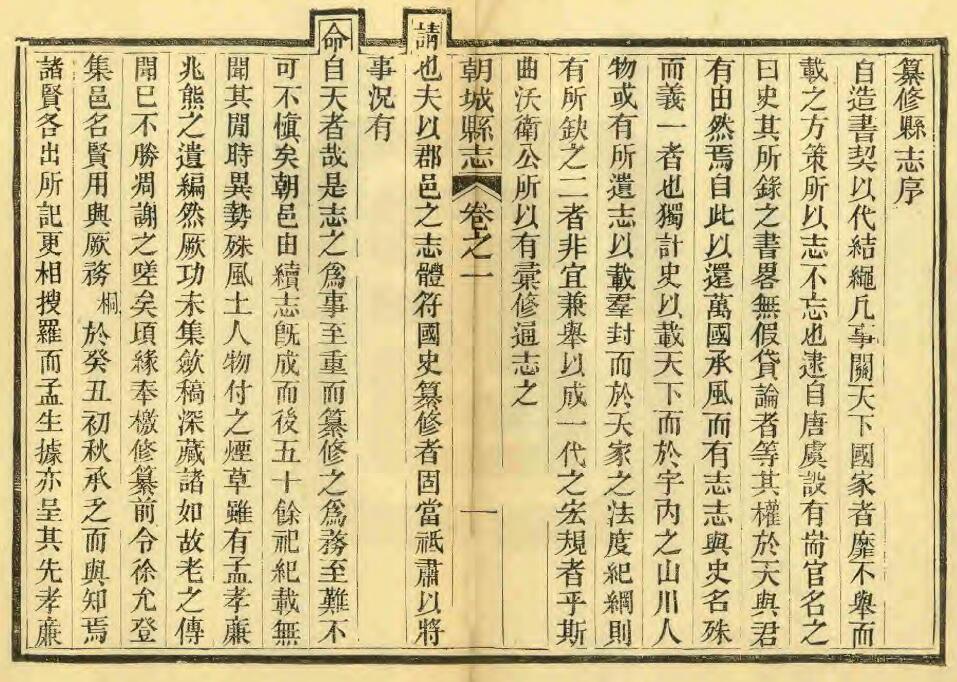 纂修縣志序
自造書契以代結繩凡事關天下國家者靡不舉而
載之方策所以志不忘也逮自唐虞設有耑官名之
曰史其所錄之書畧無假貸論者等其權於天與君
有由然焉自此以還萬國承風而有志志與史名殊
而義一者也獨計史以載天下而於宇內之山川人
物或有所遺志以載羣封而於天家之法度紀綱則
有所欽之二者非宜兼舉以成一代之宏規者乎斯
曲沃衛公所以有彙修通志之
朝城縣志
卷之一
一
請也夫以郡邑之志體符國史纂修者固當祗肅以將
事況有
命自天者哉是志之為事至重而纂修之為務至難不
可不慎矣朝邑由續志旣成而後五十餘祀紀載無
聞其閒時異勢殊風土人物付之煙草雖有孟孝廉
兆熊之遺編然厥功未集歛稿深藏諸如故老之傳
聞巳不勝凋謝之嗟矣頃緣奉檄修纂前令徐允登
集邑名賢用興厥務桐於癸丑初秋承乏而與知焉
諸賢各出所記更相搜羅而孟生據亦呈其先孝廉